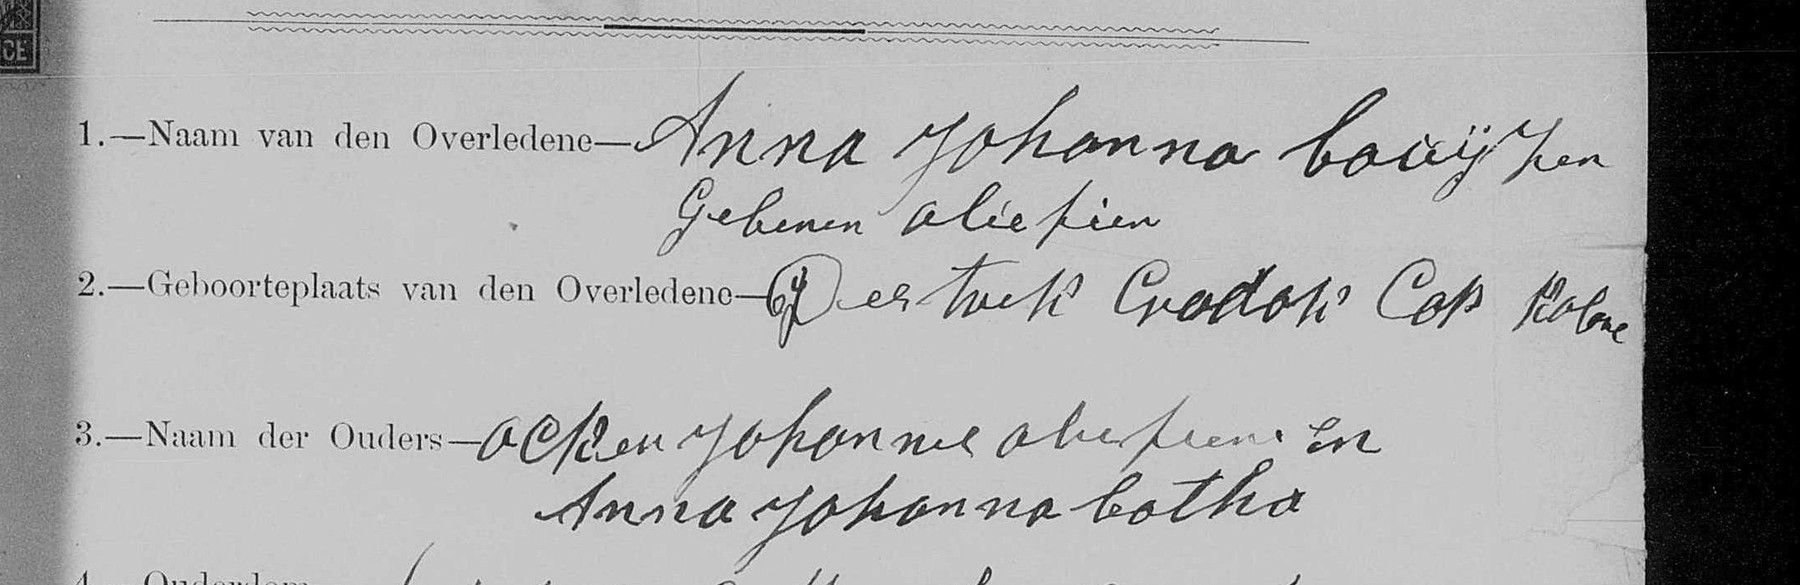 CE
1.—Naam van den Overledene—Anna Johanna booijzen
Gebenen oliefien
2.—Geboorteplaats van den Overledene—Destrek Cradok Cap Kolone
3.—Naam der Ouders—Ocker Johannes oliefien en
Anna Johanna botha
4.—Ouderdom